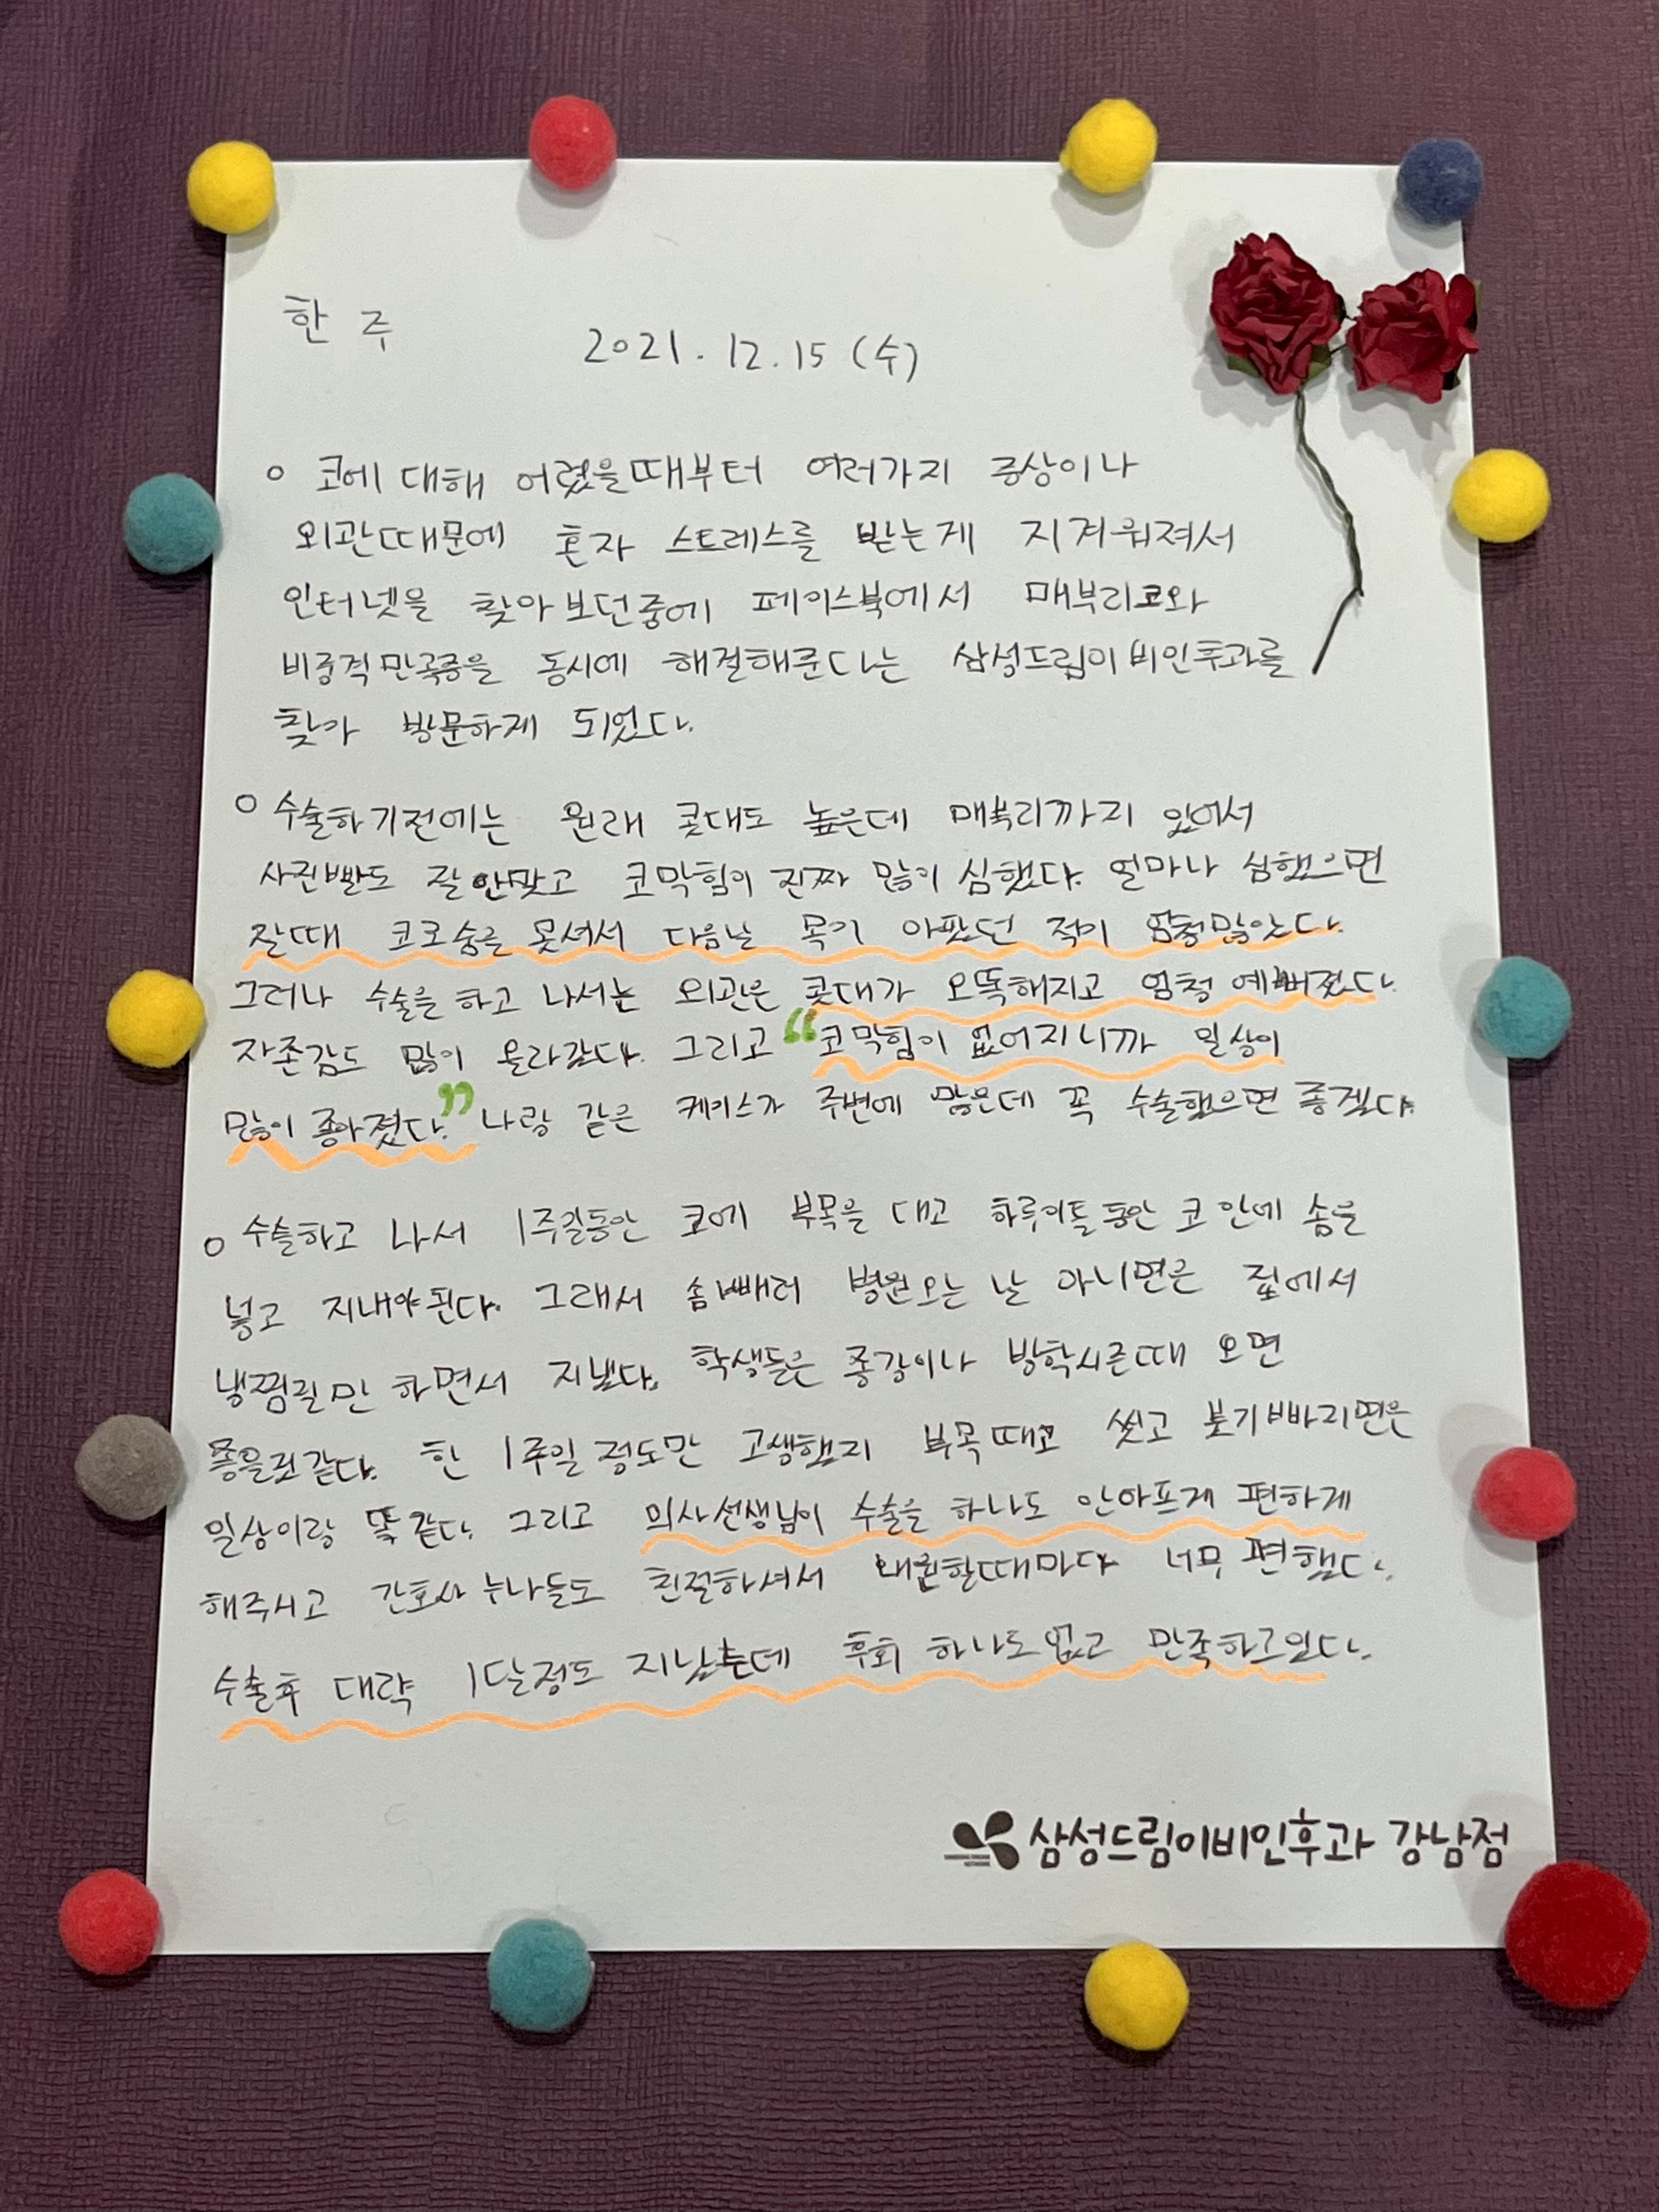 한 주
2021. 12. 15 (수)
○ 코에 대해 어렸을때부터 여러가지 증상이나
외관때문에 혼자 스트레스를 받는게 지겨워져서
인터넷을 찾아보던중에 페이스북에서 매부리코와
비중격만곡증을 동시에 해결해준다는 삼성드림이비인후과를
찾아 방문하게 되었다.
○ 수술하기전에는 원래 콧대도 높은데 매부리까지 있어서
사진빨도 잘안맞고 코막힘이 진짜 많이 심했다. 얼마나 심했으면
잘때 코로숨을 못셔서 다음날 목기 아팠던 적이 엄청많았다.
그러나 수술을 하고 나서는 외관은 콧대가 오똑해지고 엄청 예뻐졌다.
자존감도 많이 올라갔다. 그리고 “코막힘이 없어지니까 일상이
많이 좋아졌다.” 나랑 같은 케이스가 주변에 많은데 꼭 수술했으면 좋겠다.
○ 수술하고 나서 1주일동안 코에 부목을 대고 하루이틀동안 코안에 솜을
넣고 지내야된다. 그래서 솜빼러 병원오는 날 아니면은 집에서
냉찜질만 하면서 지냈다. 학생들은 종강이나 방학시즌때 오면
좋을꺼같다. 한 1주일정도만 고생했지 부목때고 씻고 붓기빠지면은
일상이랑 똑같다. 그리고 의사선생님이 수술을 하나도 안아프게 편하게
해주시고 간호사 누나들도 친절하셔서 내원할때마다 너무 편했다.
수술후 대략 1달정도 지났는데 후회 하나도없고 만족하고있다.
삼성드림이비인후과 강남점